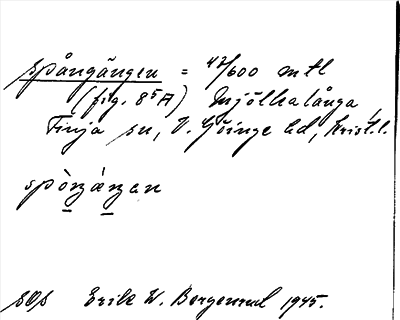 Spångängen = 47/600 mtl
(fig. 8⁵A) Mjölkalånga
Finja sn, V. Göinge hd, Krist. l.
spòŋæ̀ŋan
SOS Erik W. Bergenrud 1945.